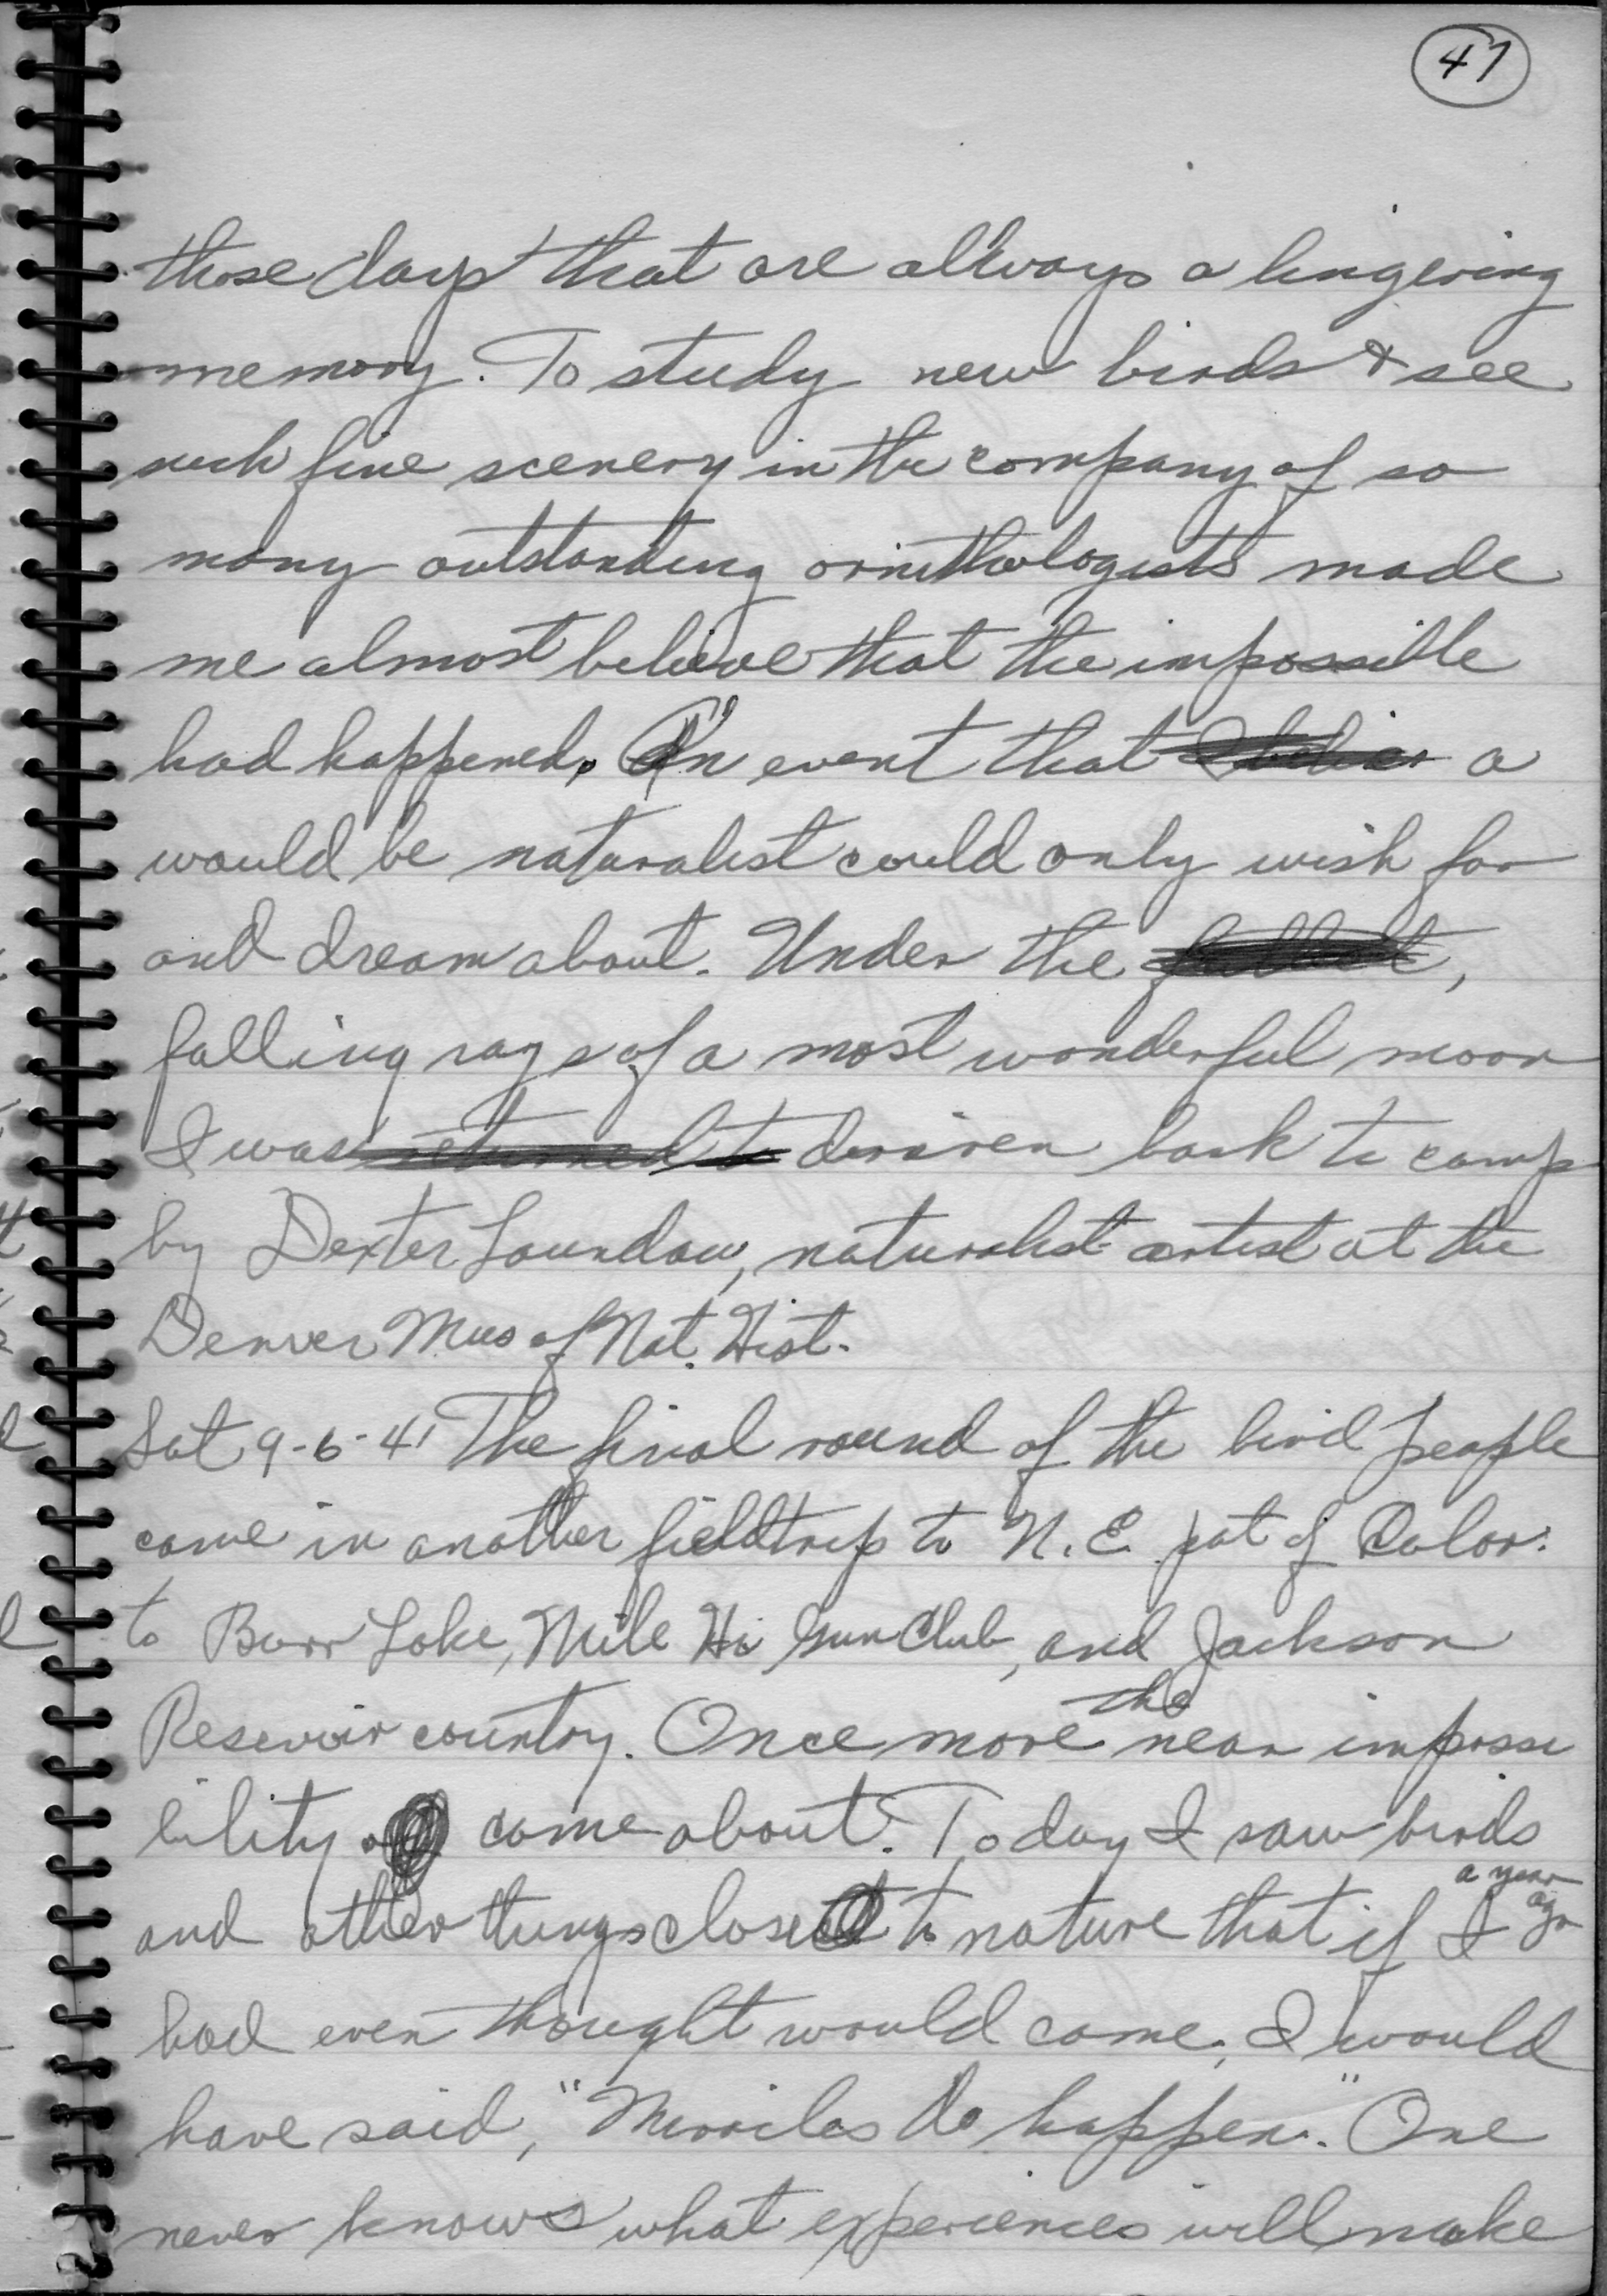 47
those days that are allways a lingering
memory. To study new birds & see
such fine scenery in the company of so
many outstanding orinthologists made
me almost believe that the impossible
had happened. An event that a
would be naturalist could only wish for
and dream about. Under the ,
falling rays of a most wonderful moon
I was returned to deriven back to camp
by Dexter Laundau, naturalist artist at the
Denver Mus of Nat. Hist.
Sat 9-6-41 The final round of the bird people
came in another field trip to N.E. pat of Color.
to Barr Lake, Mile Hi Gun Club, and Jackson
Resevoir country. Once more the near impossi
bility came about. Today I saw birds
and other things close to nature that if I a year ago
had even thought would come, I would
have said, "Mericles do happen." One
never knows what experiences will make